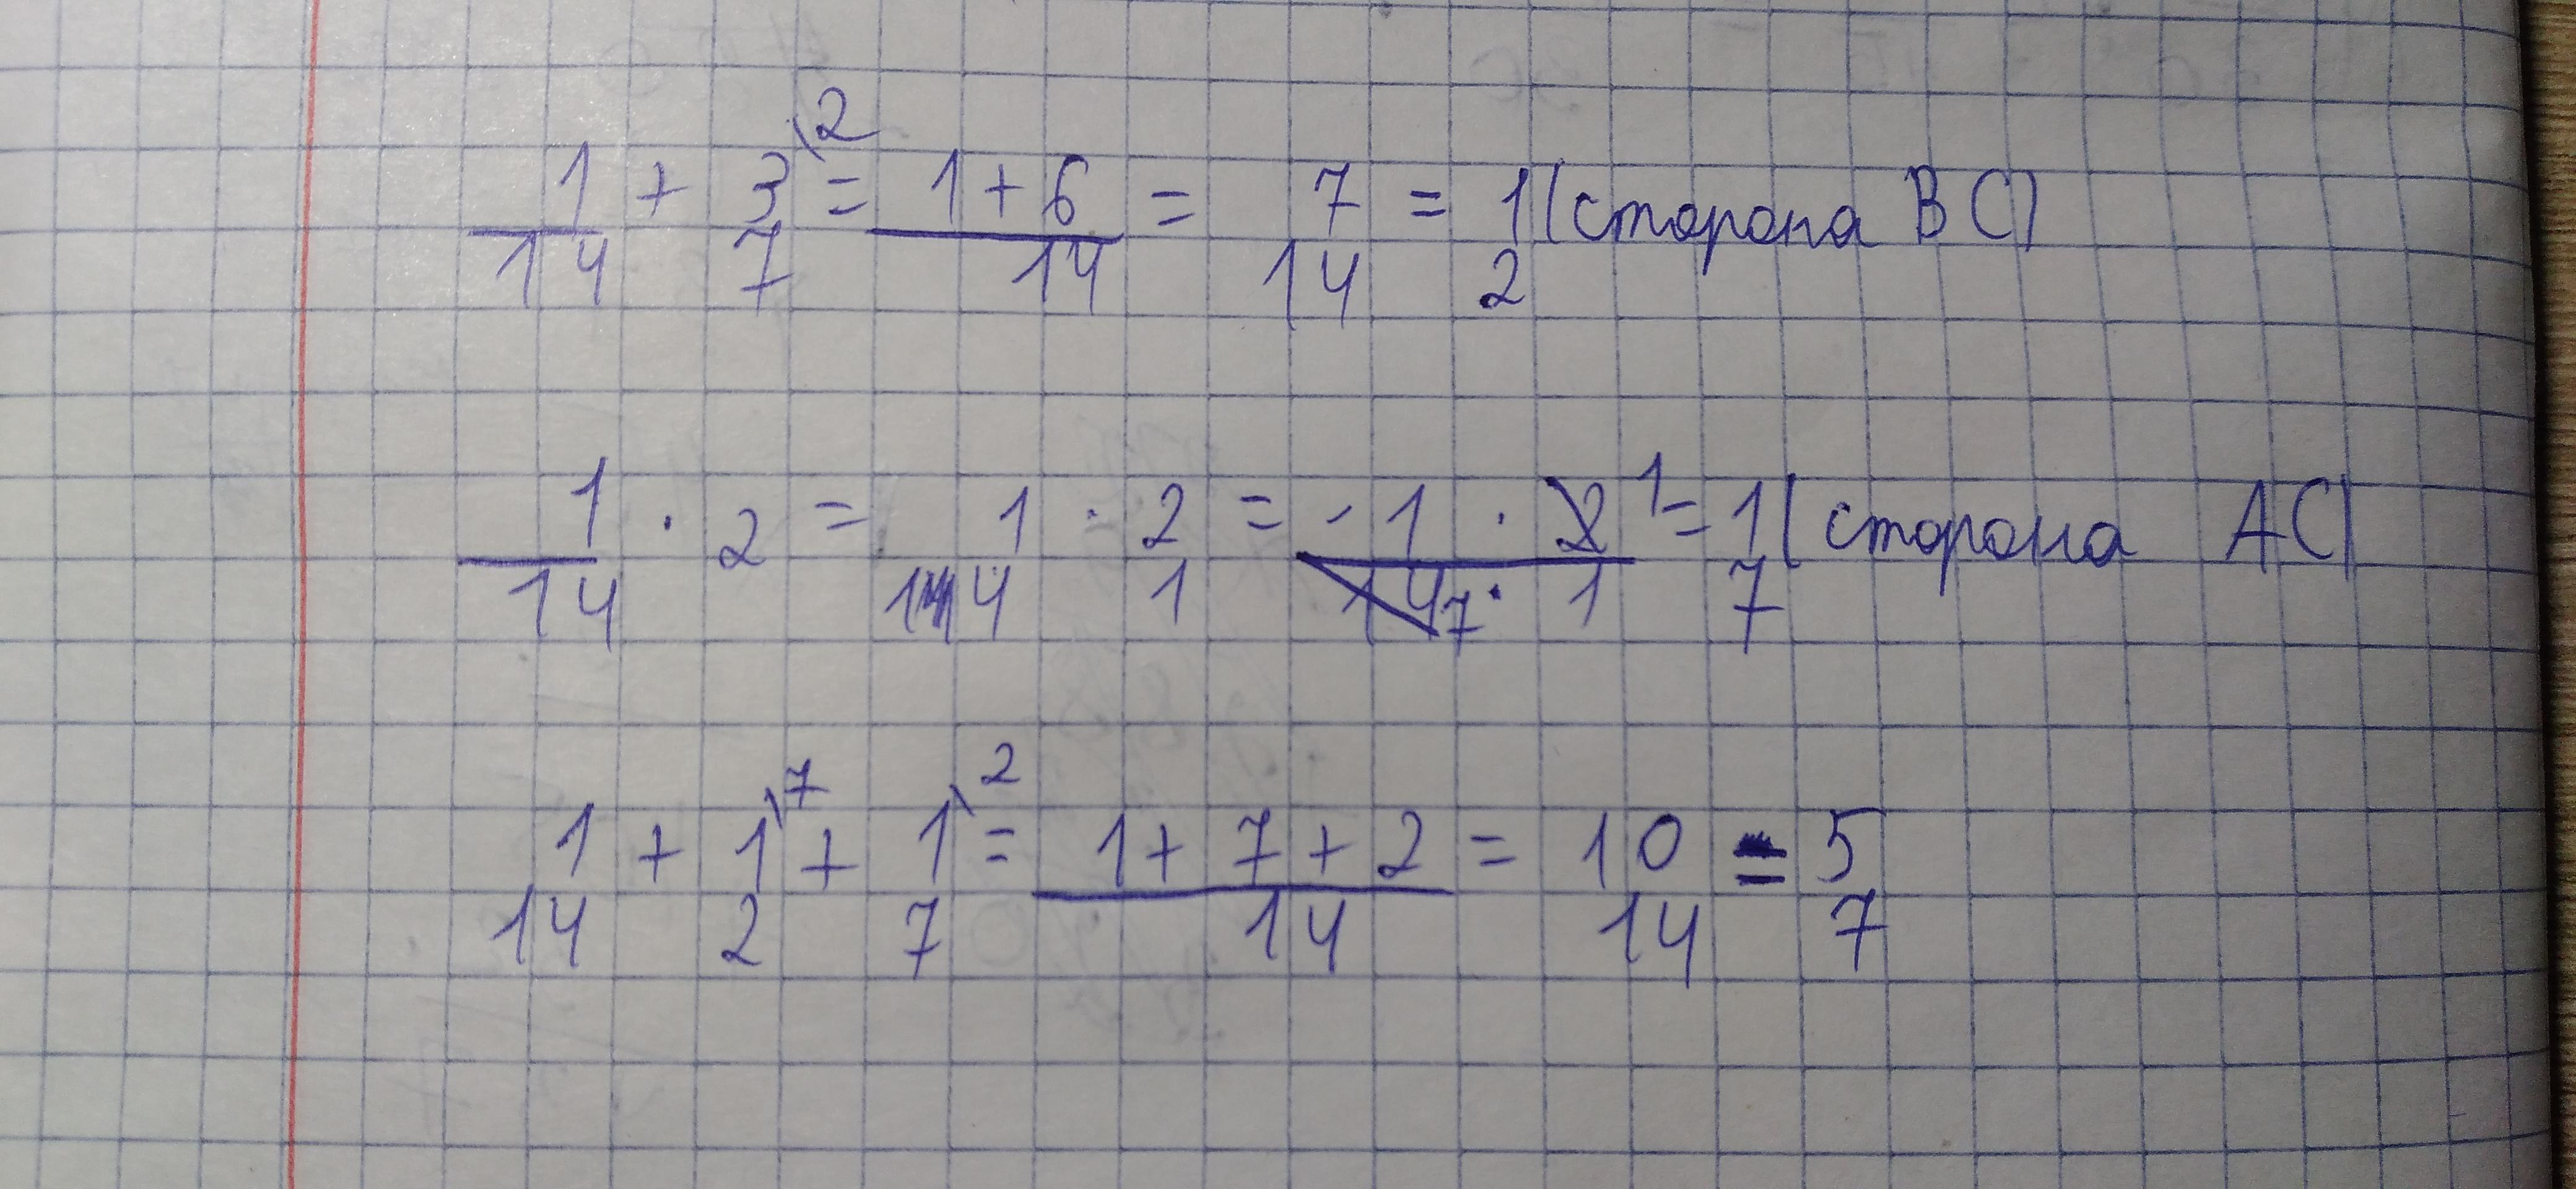 1/14 + 3\2/7 = 1+6/14 = 7/14 = 1/2 (сторона BC)
1/14 · 2 = 1/14 · 2/1 = 1 · 2 1/14 7 · 1 = 1/7 (сторона AC)
1/14 + 1\7/2 + 1\2/7 = 1+7+2/14 = 10/14 = 5/7